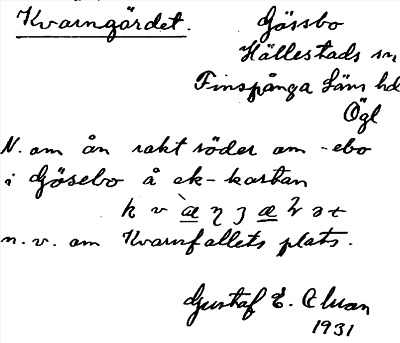 Kvarngärdet. Gössbo
Hällestads sn,
Finspånga läns hd
Ögl
N. om ån rakt söder om -ebo
i Gösebo å ek-kartan
n. v. om Kvarnfallets plats.
Gustaf E.
1931